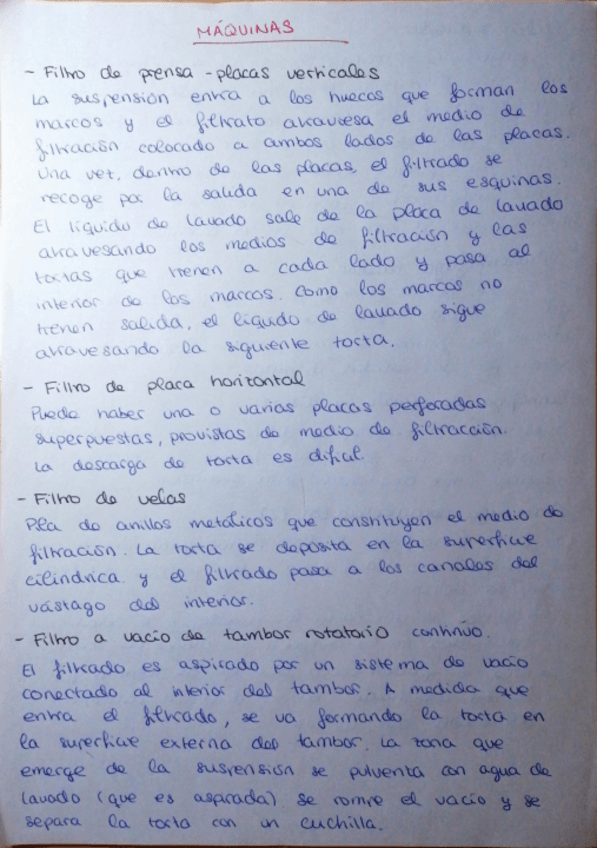 MÁQUINAS
- Filtro de prensa - placas verticales
La suspensión entra a los huecos que forman los
marcos y el filtrato atraviesa el medio de
filtración colocado a ambos lados de las placas.
Una vez, dentro de las placas, el filtrado se
recoge por la salida en una de sus esquinas.
El líquido de lavado sale de la placa de lavado
atravesando los medios de filtración y las
tortas que tienen a cada lado y pasa al
interior de los marcos. Como los marcos no
tienen salida, el líquido de lavado sigue
atravesando la siguiente torta.
- Filtro de placa horizontal
Puede haber una o varias placas perforadas
superpuestas, provistas de medio de filtracción.
La descarga de torta es difial
- Filtro de velas
Pila de anillos metálicos que constituyen el medio de
filtración. La torta se deposita en la superficie
cilíndrica y el filtrado pasa a los canales del
vástago del interior.
- Filtro a vacío de tambor rotatorio continuo.
El filtrado es aspirado por un sistema de vacío
conectado al interior del tambor. A medida que
entra el filtrado, se va formando la torta en
la superficie externa del tambor. La zona que
emerge de la suspensión se pulveriza con agua de
lavado (que es aspirada). Se rompe el vacío y se
separa la torta con un cuchilla.